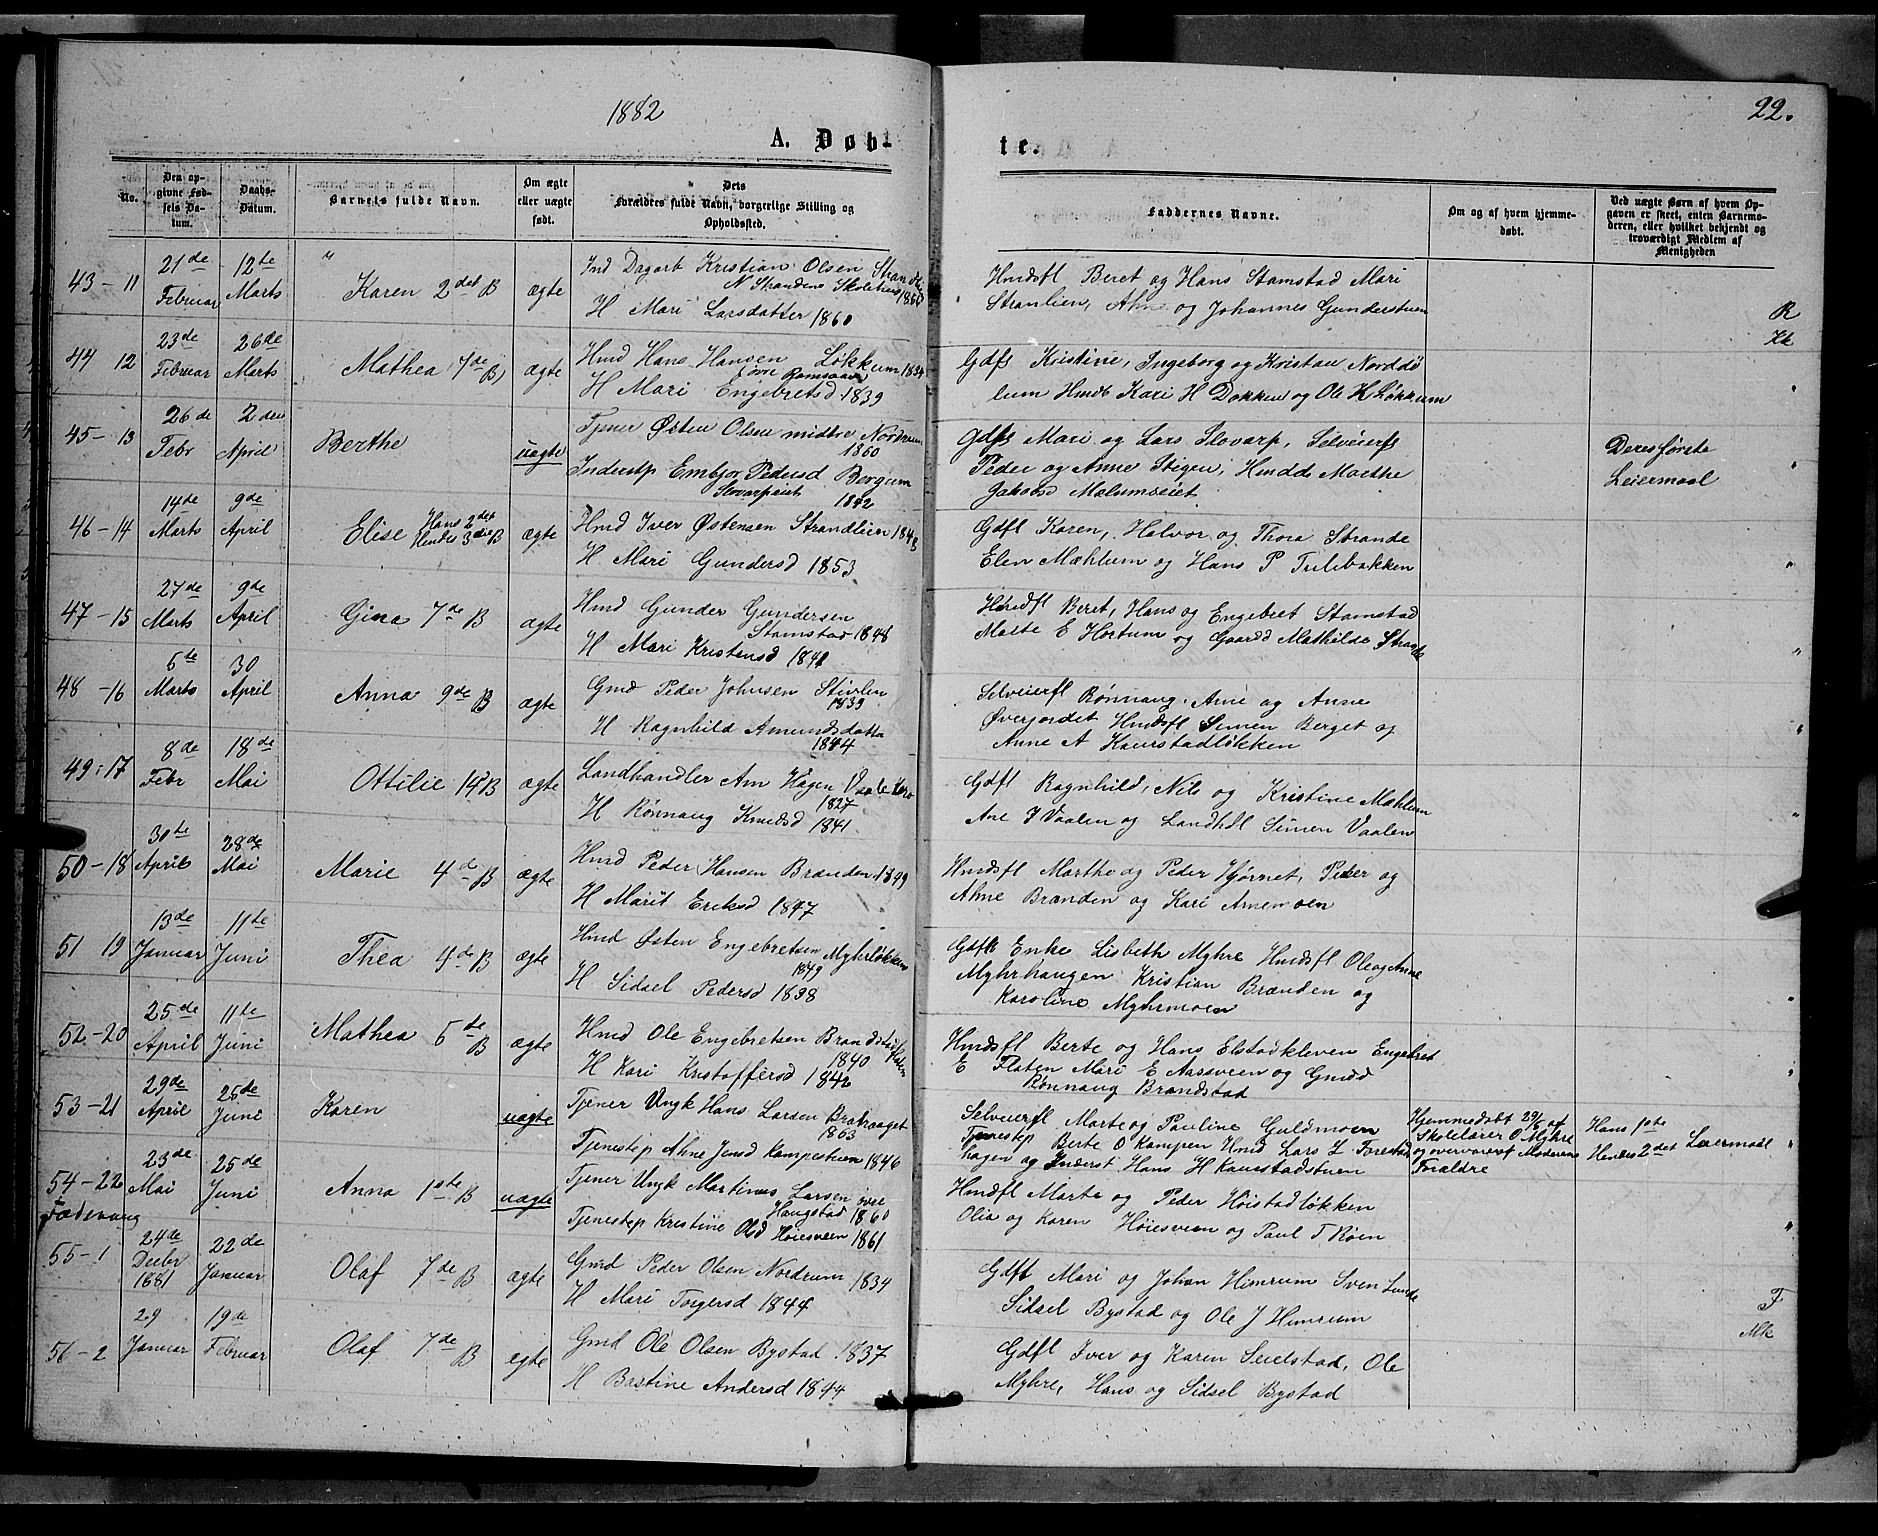 1882
22.
A. Døb-
te.
No.
Den op-
givne Fød-
sels Da-
tum.
Daabs-
Datum.
Barnets fulde Navn.
Om ægte
eller uægte
født.
Dets
Forældres fulde Navn, borgerlige Stilling og
Opholdssted.
Faddernes Navne.
Om og af hvem hjemme-
døbt.
Ved uægte Børn af hvem Op-
gaven er skeet, enten Barnemo-
deren, eller hvilket bekjendt og
troværdigt Medlem af
Menigheden
43-11
21de
Februar
12te
Marts
Karen 2det B
ægte
Ind Dagarb Kristian Olsen
N Strandens Skolehus 1860
H Mari Larsdatter 1860
Hmdsfl Beret og Hans Stamstad Mari
Stranlien, Ahne og Johannes Gunderstuen
R
44 12
23de
Februar
26de
Marts
Mathea 7de B
ægte
Hmd Hans Hansen Løkkum 1834
H Mari Engebretsd 1839
Gdfl Kristine, Ingeborg og Kristan Norddø
lum Hmdk Kari H Dokken og Ole H Løkkum
45-13
26de
Febr
2den
April
Berthe
uægte
Tjener Østen Olsen midtre Nordrum
1860
Inderstp Embjør Pedersd Bergum
1842
Gdfl Mari og Lars Slovarp, Selveierfl
Peder og Anne Stigen, Hmdd Marthe
Jakobsd Malumseiet
Deres første
Leiermaal
46-14
14de
Marts
9de
April
Elise Hans 2det
Hendes 3die B
ægte
Hmd Iver Østensen Strandlien 1848
H Mari Gundersd 1853
Gdfl Karen, Halvor og Thora Strande
Elen Mæhlum og Hans P Tulebakken
47-15
27de
Marts
9de
April
Gina 7de B
ægte
Hmd Gunder Gundersen
Stamstad 1848
H Mari Kristensd 1841
Hmdfl Beret, Hans og Engebret Stamstad
Marte E Hortum og Gaardd Mathilde Strande
48-16
5te
Marts
30
April
Anna 9de B
ægte
Gmd Peder Johnsen Stivlen
1839
H Ragnhild Amundsdatter
1844
Selveierfl Rønnaug, Arne og Anne
Øverjordet Hmdsfl Simen Berget og
Anne A Kaurstadløkken
49-17
8de
Febr
18de
Mai
Ottilie 14d B
ægte
Landhandler Am Hagen Vaalen
1827
H Rønnaug Knudsd 1841
Gdfl Ragnhild, Nils og Kristine Mæhlum
Ane J Vaalen og Landhdl Simen Vaalen
50-18
30te
April
28de
Mai
Marie 4de B
ægte
Hmd Peder Hansen Brænden 1849
H Marit Eriksd 1847
Hmdsfl Marthe og Peder Hjørnet, Peder og
Ahne Brænden og Kari Arnemoen
51 19
13de
Januar
11te
Juni
Thea 4de B
ægte
Hmd Østen Engebretsen Myhrløkken
1849
H Sidsel Pedersd 1838
Gdfk Enke Lisbeth Myhre Hmdsfl Ole og Anne
Myhrhaugen Kristian Brænden og
Karoline Myhrmoen
52-20
25de
April
11te
Juni
Mathea 5te B
ægte
Hmd Ole Engebretsen Brandstad
1840
H Kari Kristoffersd 1842
Hmdsfl Berte og Hans Elstadkleven Engebret
E Flaten Mari E Aassveen og Gmdd
Rønnaug Brandstad
53-21
29de
April
25de
Juni
Karen
uægte
Tjener Ungk Hans Larsen Bratvaaget
1863
Tjenestep Ahne Jensd Kampestuen 1846
Selveierfl Marte og Pauline Guldmoen
Tjenestep Berte O Kampen Hmd Lars L Forestad
hagen og Inderst Hans H Kaurstadstuen
Hjemmedøbt 29/5 af
Skolelærer O Myhre
og overværet Moderens
Forældre
Hans 1ste
Hendes 2det Leiermaal
54-22
23de
Mai
25de
Juni
Anna 1ste B
uægte
Tjener Ungk Martinus Larsen øvre
Haugstad 1860
Tjenestep Kristine Olsd Høiesveen 1861
Hmdsfl Marte og Peder Høistadløkken
Olia og Karen Høiesveen og Paul T Røen
Fodevang
55-1
24de
Decbr
1881
22de
Januar
Olaf 7de B
ægte
Gmd Peder Olsen Nordrum 1834
H Mari Torgersd 1844
Gdfl Mari og Johan Himrum Sven Lunde
Sidsel Bystad og Ole J Himrum
F
Mk
56-2
29
Januar
19de
Februar
Olaf 7de B
ægte
Gmd Ole Olsen Bystad 1837
H Bastine Andersd 1844
Gdfl Iver og Karen Seielstad, Ole
Myhre, Hans og Sidsel Bystad